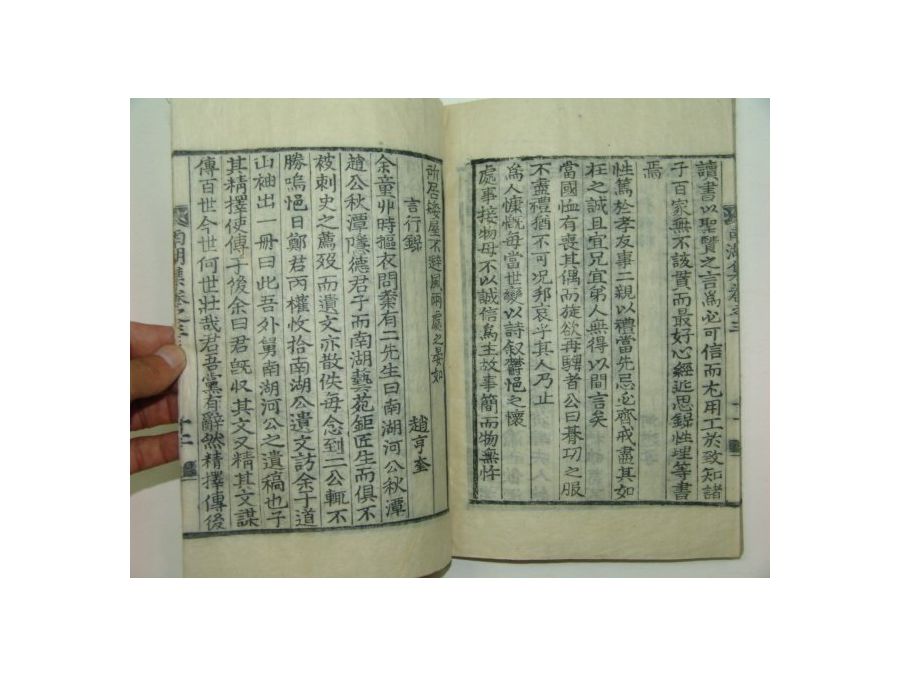 讀書以聖賢之言爲必可信而尤用工於致知諸
子百家無不該貫而最好心經近思錄性理等書
焉
性篤於孝友事二親以禮當先忌必齊戒盡其如
在之誠且宜兄宜弟人無得以間言矣
當國恤有喪其偶而旋欲再騁者公曰朞功之服
不盡禮猶不可况邦哀乎其人乃止
爲人慷慨每當世變以詩叙欝悒之懷
處事接物母不以誠信爲主故事簡而物無忤
南湖集卷之三
十一
所居矮屋不避風雨處之晏如
言行錄
趙亨奎
余童丱時摳衣問業有二先生曰南湖河公秋潭
趙公秋潭隱德君子而南湖藝苑鉅匠生而俱不
被刺史之薦歿而遺文亦散佚每念到二公輒不
勝嗚悒日鄭君丙權收拾南湖公遺文訪余于道
山袖出一冊曰此吾外舅南湖河公之遺稿也子
其精擇使傳于後余曰君旣収其文又精其文謀
傳百世今世何世壯哉君吾黨有辭然精擇傳後
南湖集卷之三
十二